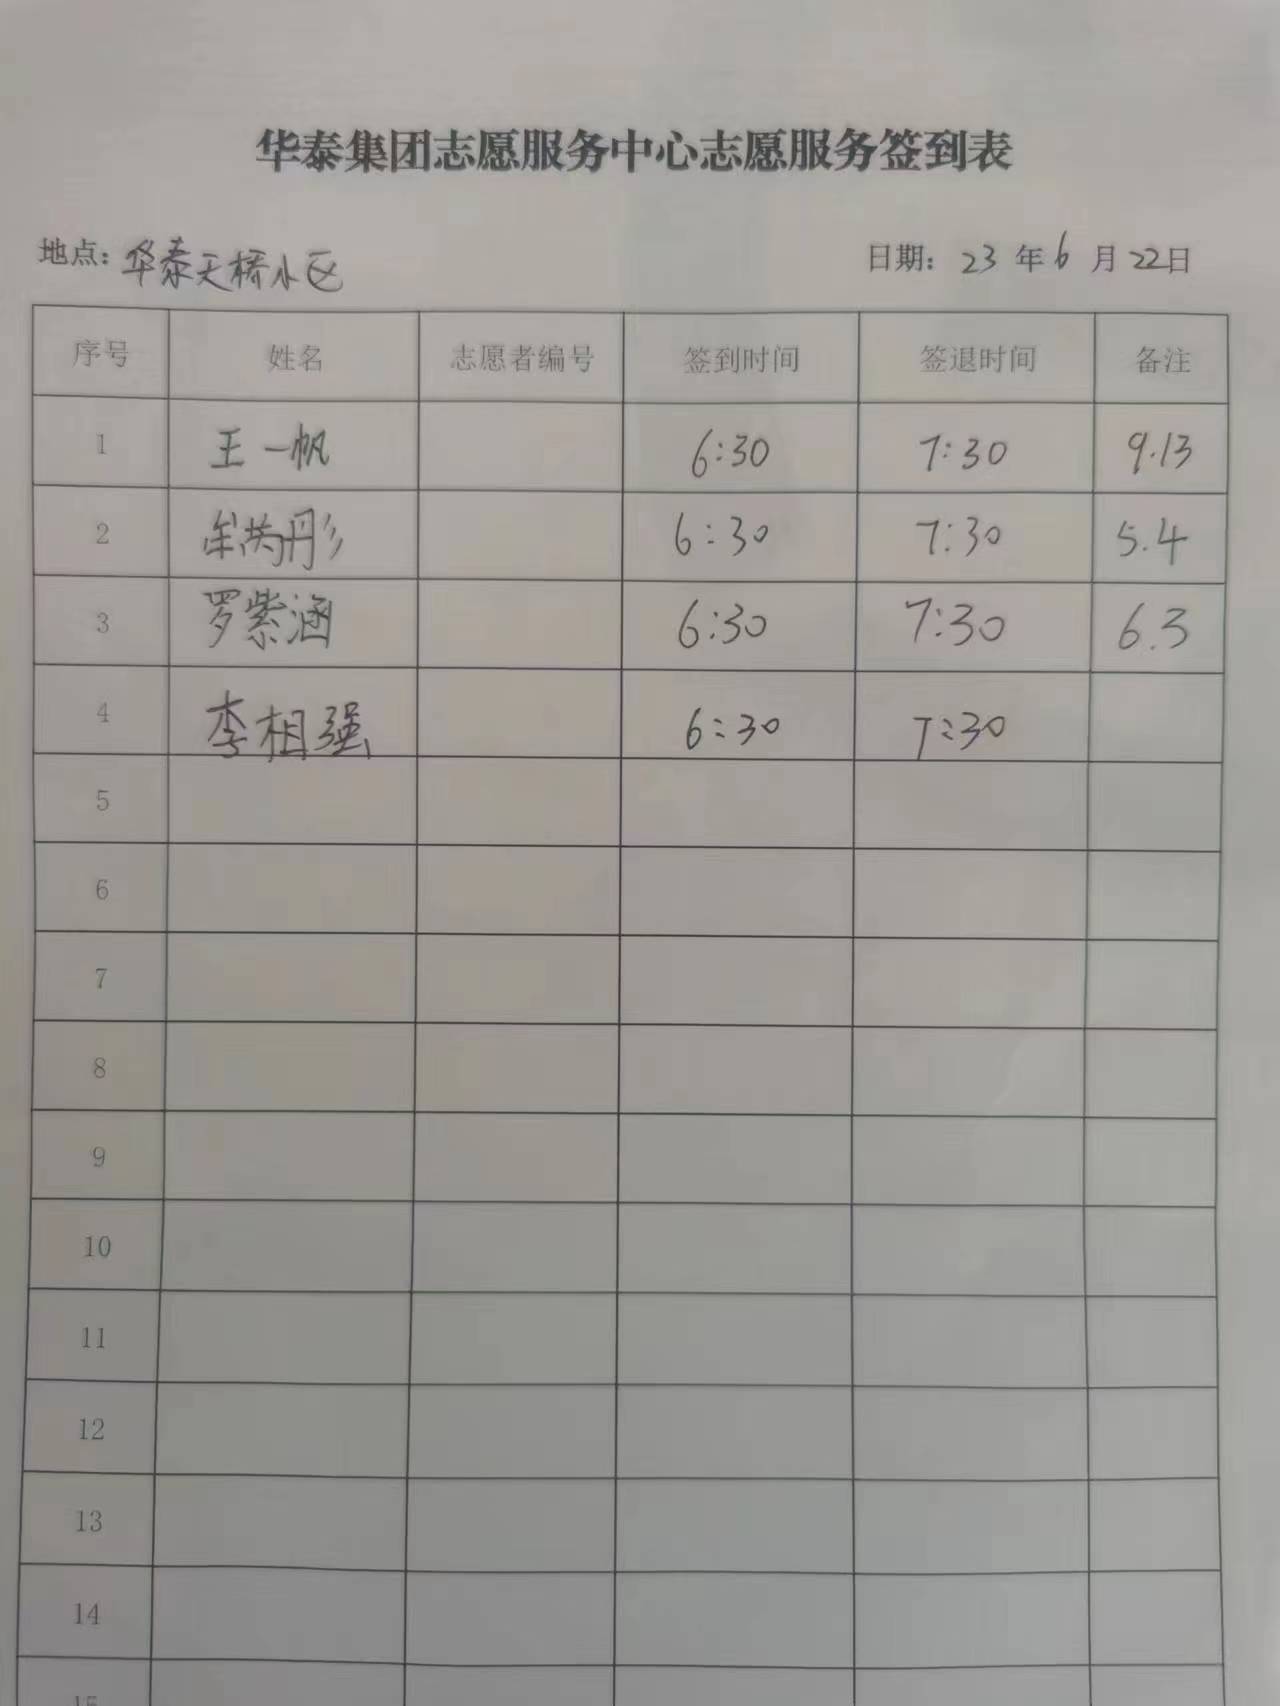 华泰集团志愿服务中心志愿服务签到表
地点：华泰天桥小区 日期：23年6月22日
序号 姓名 志愿者编号 签到时间 签退时间 备注
1 王一帆 6:30 7:30 9.13
2 牟芮彤 6:30 7:30 5.4
3 罗紫涵 6:30 7:30 6.3
4 李相强 6:30 7:30
5
6
7
8
9
10
11
12
13
14
15